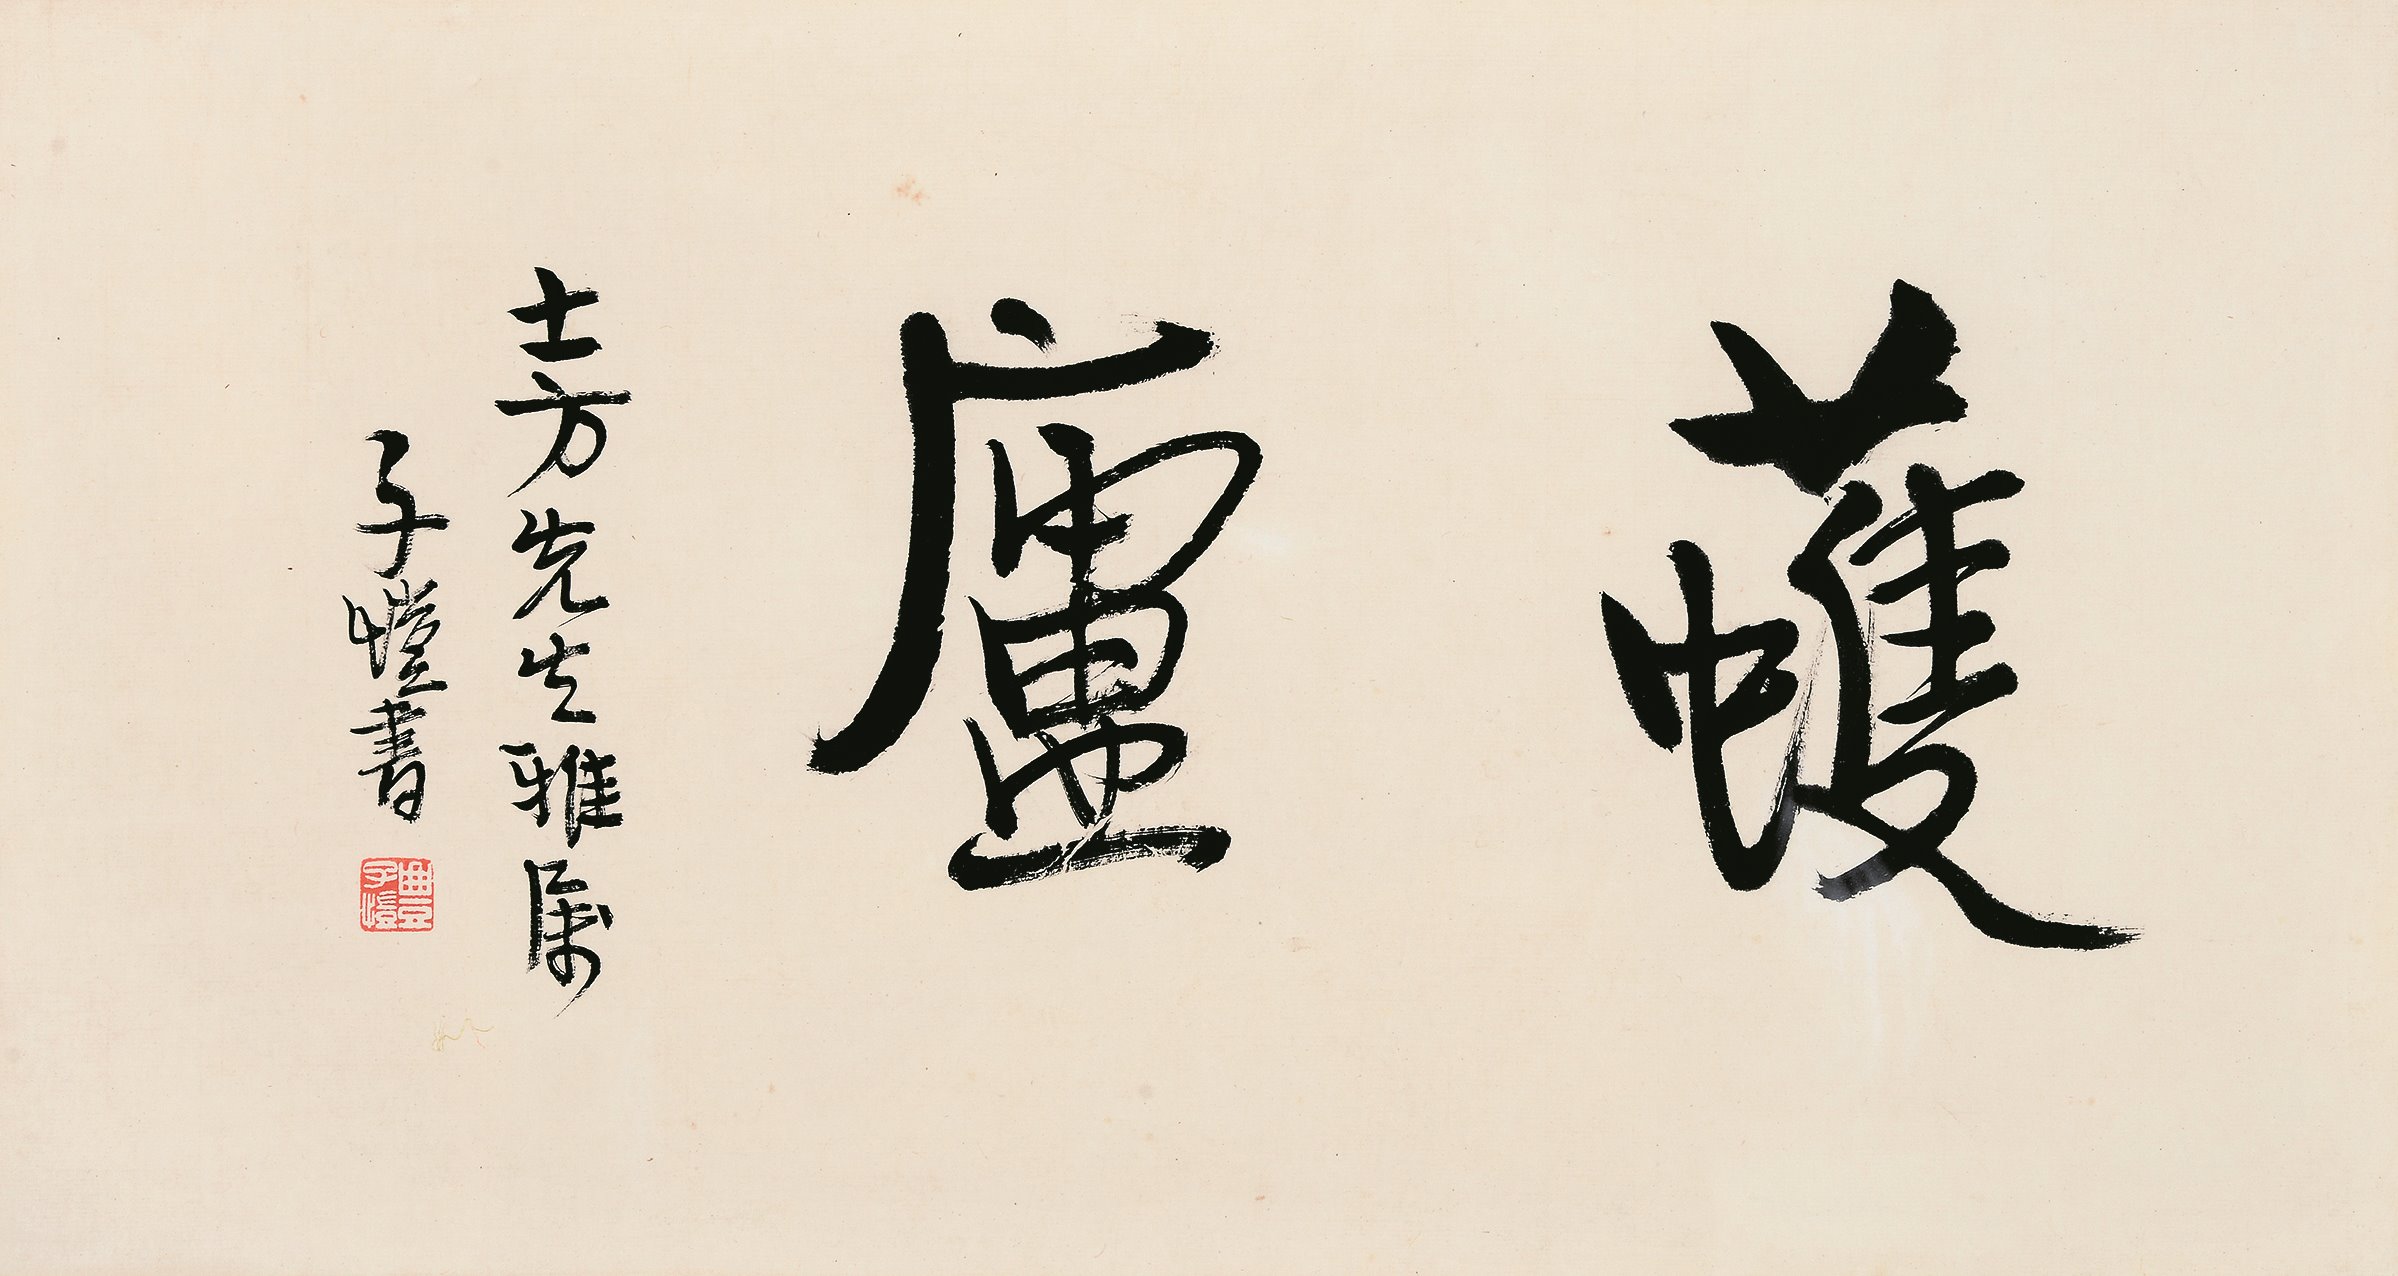 蠖廬
士方先生雅属
子愷書
豐子愷